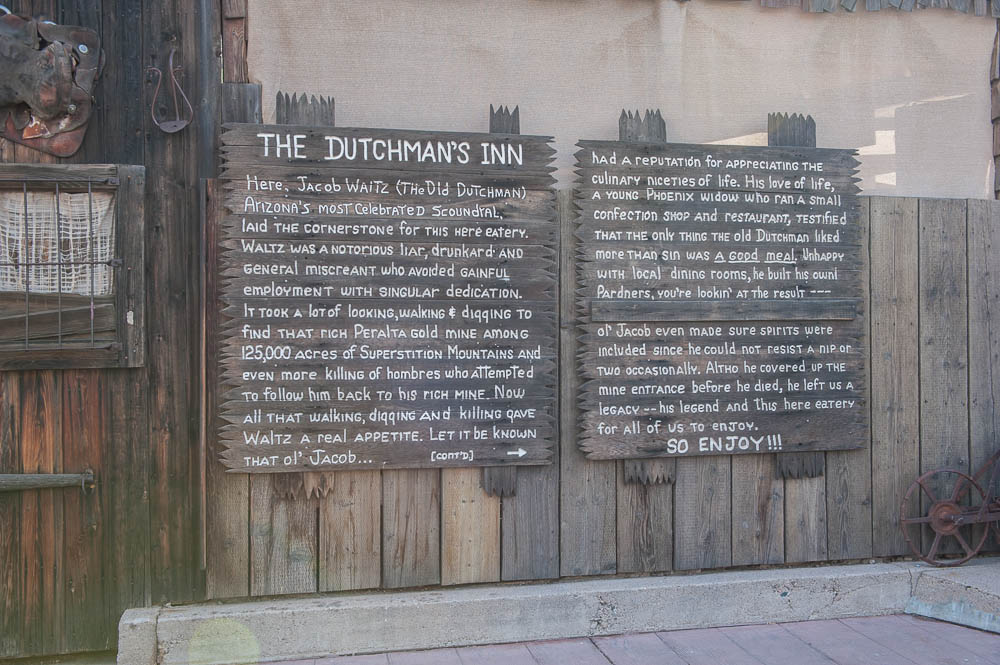 THE DUTCHMAN'S INN
Here, Jacob Waltz (The Old Dutchman)
Arizona's most celebrated scoundral,
laid the cornerstone for this here eatery.
Waltz was a notorious liar, drunkard and
general miscreant who avoided gainful
employment with singular dedication.
It took a lot of looking, walking & digging to
find that rich Peralta gold mine among
125,000 acres of Superstition Mountains and
even more killing of hombres who attempted
to follow him back to his rich mine. Now
all that walking, digging and killing gave
Waltz a real appetite. Let it be known
that ol' Jacob... [CONT'D] →
had a reputation for appreciating the
culinary niceties of life. His love of life,
a young Phoenix widow who ran a small
confection shop and restaurant, testified
that the only thing the old Dutchman liked
more than sin was a good meal. Unhappy
with local dining rooms, he built his own!
Pardners, you're lookin' at the result ---
ol' Jacob even made sure spirits were
included since he could not resist a nip or
two occasionally. Altho he covered up the
mine entrance before he died, he left us a
legacy -- his legend and this here eatery
for all of us to enjoy.
SO ENJOY!!!